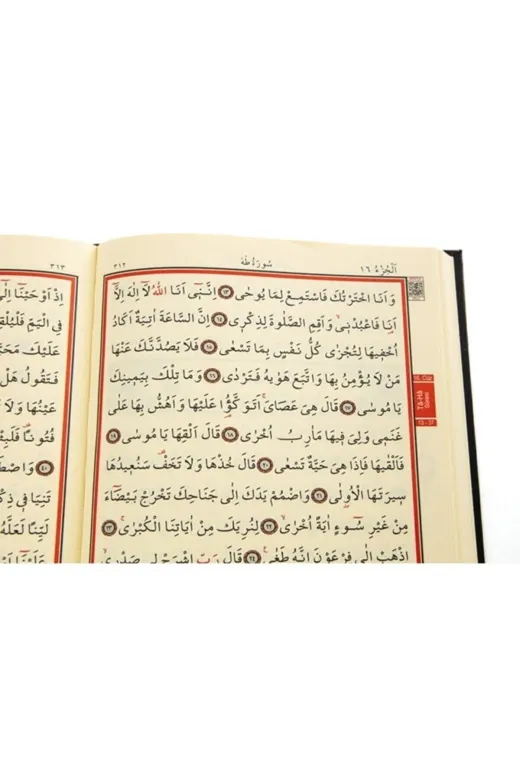 اَلْجُزْءُ ١٦
سُورَةُ طٰهٰ
٣١٢
وَ اَنَا اخْتَرْتُكَ فَاسْتَمِعْ لِمَا يُوحٰى ﴿١٣﴾ اِنَّن۪ٓي اَنَا اللّٰهُ لَٓا اِلٰهَ اِلَّٓا
اَنَا۬ فَاعْبُدْن۪يۙ وَاَقِمِ الصَّلٰوةَ لِذِكْر۪ي ﴿١٤﴾ اِنَّ السَّاعَةَ اٰتِيَةٌ اَكَادُ
اُخْف۪يهَا لِتُجْزٰى كُلُّ نَفْسٍ بِمَا تَسْعٰى ﴿١٥﴾ فَلَا يَصُدَّنَّكَ عَنْهَا
مَنْ لَا يُؤْمِنُ بِهَا وَاتَّبَعَ هَوٰيهُ فَتَرْدٰى ﴿١٦﴾ وَمَا تِلْكَ بِيَم۪ينِكَ
يَا مُوسٰى ﴿١٧﴾ قَالَ هِيَ عَصَايَۚ اَتَوَكَّؤُ۬ا عَلَيْهَا وَاَهُشُّ بِهَا عَلٰى
غَنَم۪ي وَلِيَ ف۪يهَا مَاٰرِبُ اُخْرٰى ﴿١٨﴾ قَالَ اَلْقِهَا يَا مُوسٰى ﴿١٩﴾
فَاَلْقٰيهَا فَاِذَا هِيَ حَيَّةٌ تَسْعٰى ﴿٢٠﴾ قَالَ خُذْهَا وَلَا تَخَفْ۠ سَنُع۪يدُهَا
س۪يرَتَهَا الْاُو۫لٰى ﴿٢١﴾ وَاضْمُمْ يَدَكَ اِلٰى جَنَاحِكَ تَخْرُجْ بَيْضَٓاءَ
مِنْ غَيْرِ سُٓوءٍ اٰيَةً اُخْرٰىۙ ﴿٢٢﴾ لِنُرِيَكَ مِنْ اٰيَاتِنَا الْكُبْرٰىۚ ﴿٢٣﴾
اِذْهَبْ اِلٰى فِرْعَوْنَ اِنَّهُ طَغٰى۟ ﴿٢٤﴾ قَالَ رَبِّ اشْرَحْ ل۪ي صَدْر۪يۙ
16. Cüz
Tâ-Hâ
Sûresi
٣١٣
اِذْ اَوْحَيْنَٓا اِلٰٓى
فِي الْيَمِّ فَلْيُلْقِ
عَلَيْكَ مَحَ
فَتَقُولُ هَلْ
عَيْنُهَا وَلَا
فُتُونًا۠ فَلَبِثْ
﴿٤٠﴾ وَاصْطَ
تَنِيَا ف۪ي ذِكْ
لَيِّنًا لَعَلَّهُ
عَلَيْنَٓا اَ